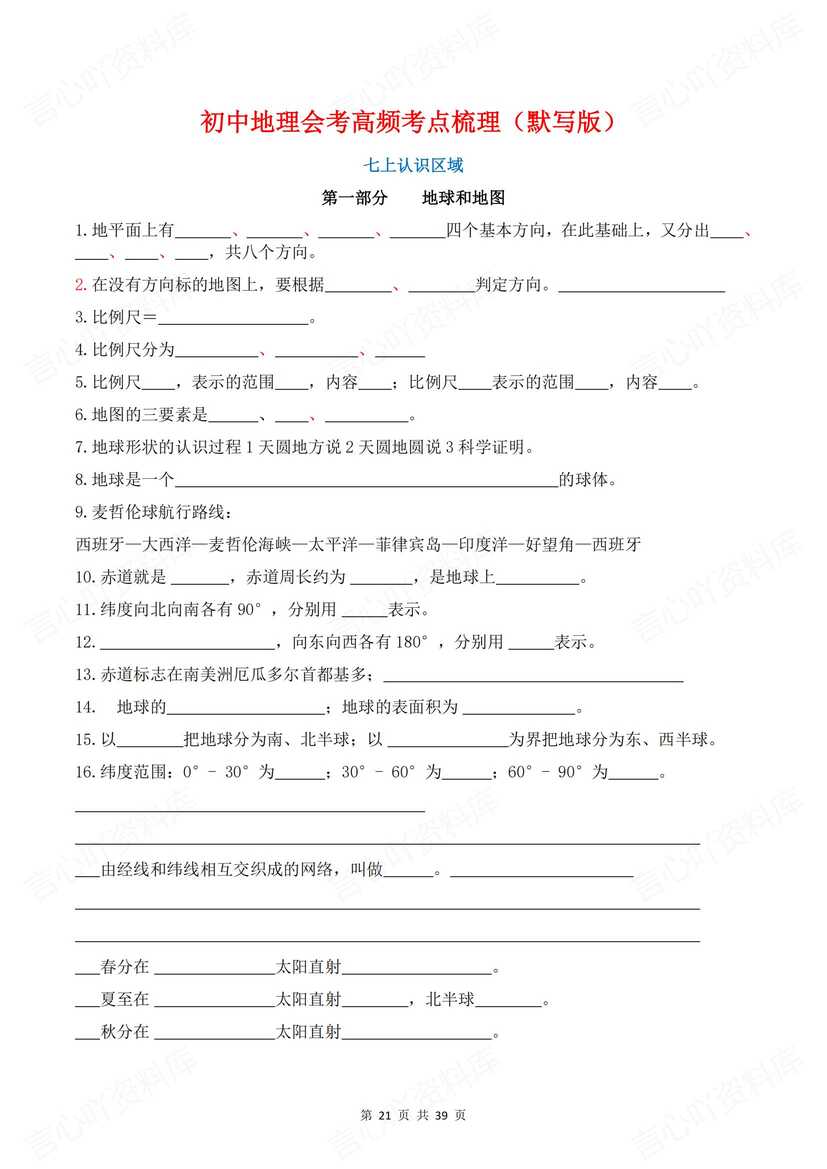 初中地理会考高频考点梳理（默写版）
七上认识区域
第一部分 地球和地图
1.地平面上有______、______、______、______四个基本方向，在此基础上，又分出____、
____、____、____，共八个方向。
2.在没有方向标的地图上，要根据________、________判定方向。____________________
3.比例尺＝__________________。
4.比例尺分为__________、__________、______
5.比例尺____，表示的范围____，内容____；比例尺____表示的范围____，内容____。
6.地图的三要素是______、____、__________。
7.地球形状的认识过程1天圆地方说2天圆地圆说3科学证明。
8.地球是一个______________________________________________的球体。
9.麦哲伦球航行路线：
西班牙—大西洋—麦哲伦海峡—太平洋—菲律宾岛—印度洋—好望角—西班牙
10.赤道就是 _______，赤道周长约为 _______，是地球上__________。
11.纬度向北向南各有90°，分别用 _____表示。
12._____________________，向东向西各有180°，分别用 _____表示。
13.赤道标志在南美洲厄瓜多尔首都基多；____________________________________
14. 地球的___________________；地球的表面积为 _____________。
15.以________把地球分为南、北半球；以 ______________为界把地球分为东、西半球。
16.纬度范围：0°- 30°为______；30°- 60°为______；60°- 90°为______。
__________________________________________
___________________________________________________________________________
___由经线和纬线相互交织成的网络，叫做______。______________________
___________________________________________________________________________
___________________________________________________________________________
___春分在 ______________太阳直射__________________。
___夏至在 ______________太阳直射________，北半球________。
___秋分在 ______________太阳直射__________________。
第 21 页 共 39 页
言心吖资料库